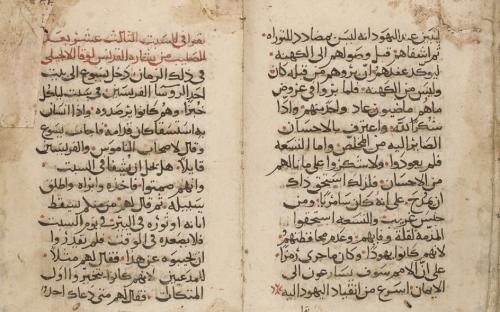 ليتبين عند اليهود انه ليس بمضادد للتوراه
ثم اشفاهم قبل وصولهم الى الكهنه
ليوكد عندهم ان بروهم من قبله كان
وليس من الكهنه فلما بروا في عروض
ماهم ماضيون عاد واحد منهم واذا
شكرًا لله واعترف بالاحسان
الصاير اليه من المخلص واما التسعه
فلم يعودوا ولا شكروا على ما نالهم
من الاحسان فلذلك استحق ذاك
ان يمدح على انه كان سامريًا ومن
جنس غريب والتسعه استحقوا
المذمه لقلة وفايهم وعدم محافظتهم
لانهم كانوا يهودا وكان ما جرى رمزًا
على ان الامم سوف يسارعون الى
الايمان اسرع من انقياد اليهود اليه
يقرا في السبت الثالث عشر بعد
الصليب من بشارة القديس لوقا الانجيلي
في ذلك الزمان دخل يسوع الى بيت
احد الروسا الفريسين في سبت لياكل
خبزًا وهم كانوا يرصدوه واذا انسان
به استسقا كان قدامه فاجاب يسوع
وقال لاصحاب الناموس والفريسين
قايلاً هل يحل ان يشفى في السبت
وانهم صمتوا فاخذه وابراه واطلق
سبيله ثم قال لهم من منكم يسقط
ابنه او ثوره في البير في يوم السبت
فلا يصعده في الوقت فلم يقدروا
ان يجيبوه عن هذا فقال لهم مثلاً
للمدعيين لانهم كانوا يتخيروا اول
المتكات فقال لهم متى دعاك احد